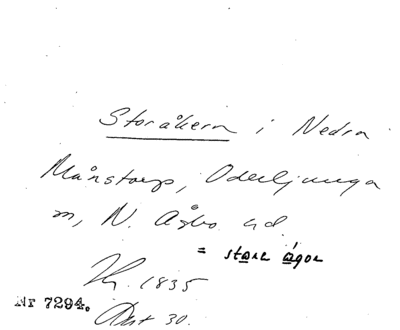 Storåkern i Nedra
Månstorp, Oderljunga
m, N. Åsbo hd.
= stora ägor
1835
Nr 7294.
Akt 30.